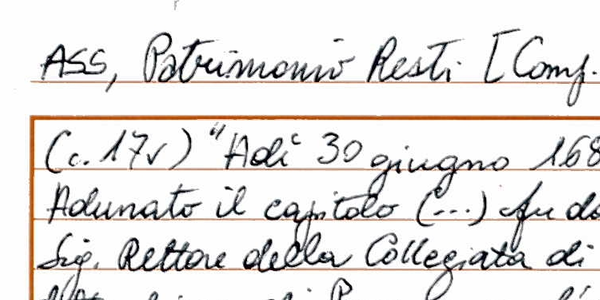 ASS, Patrimonio Resti [Comp.
(c. 17v) "Adi 30 giugno 168
Adunato il capitolo (...) fu da
Sig. Rettore della Collegiata di